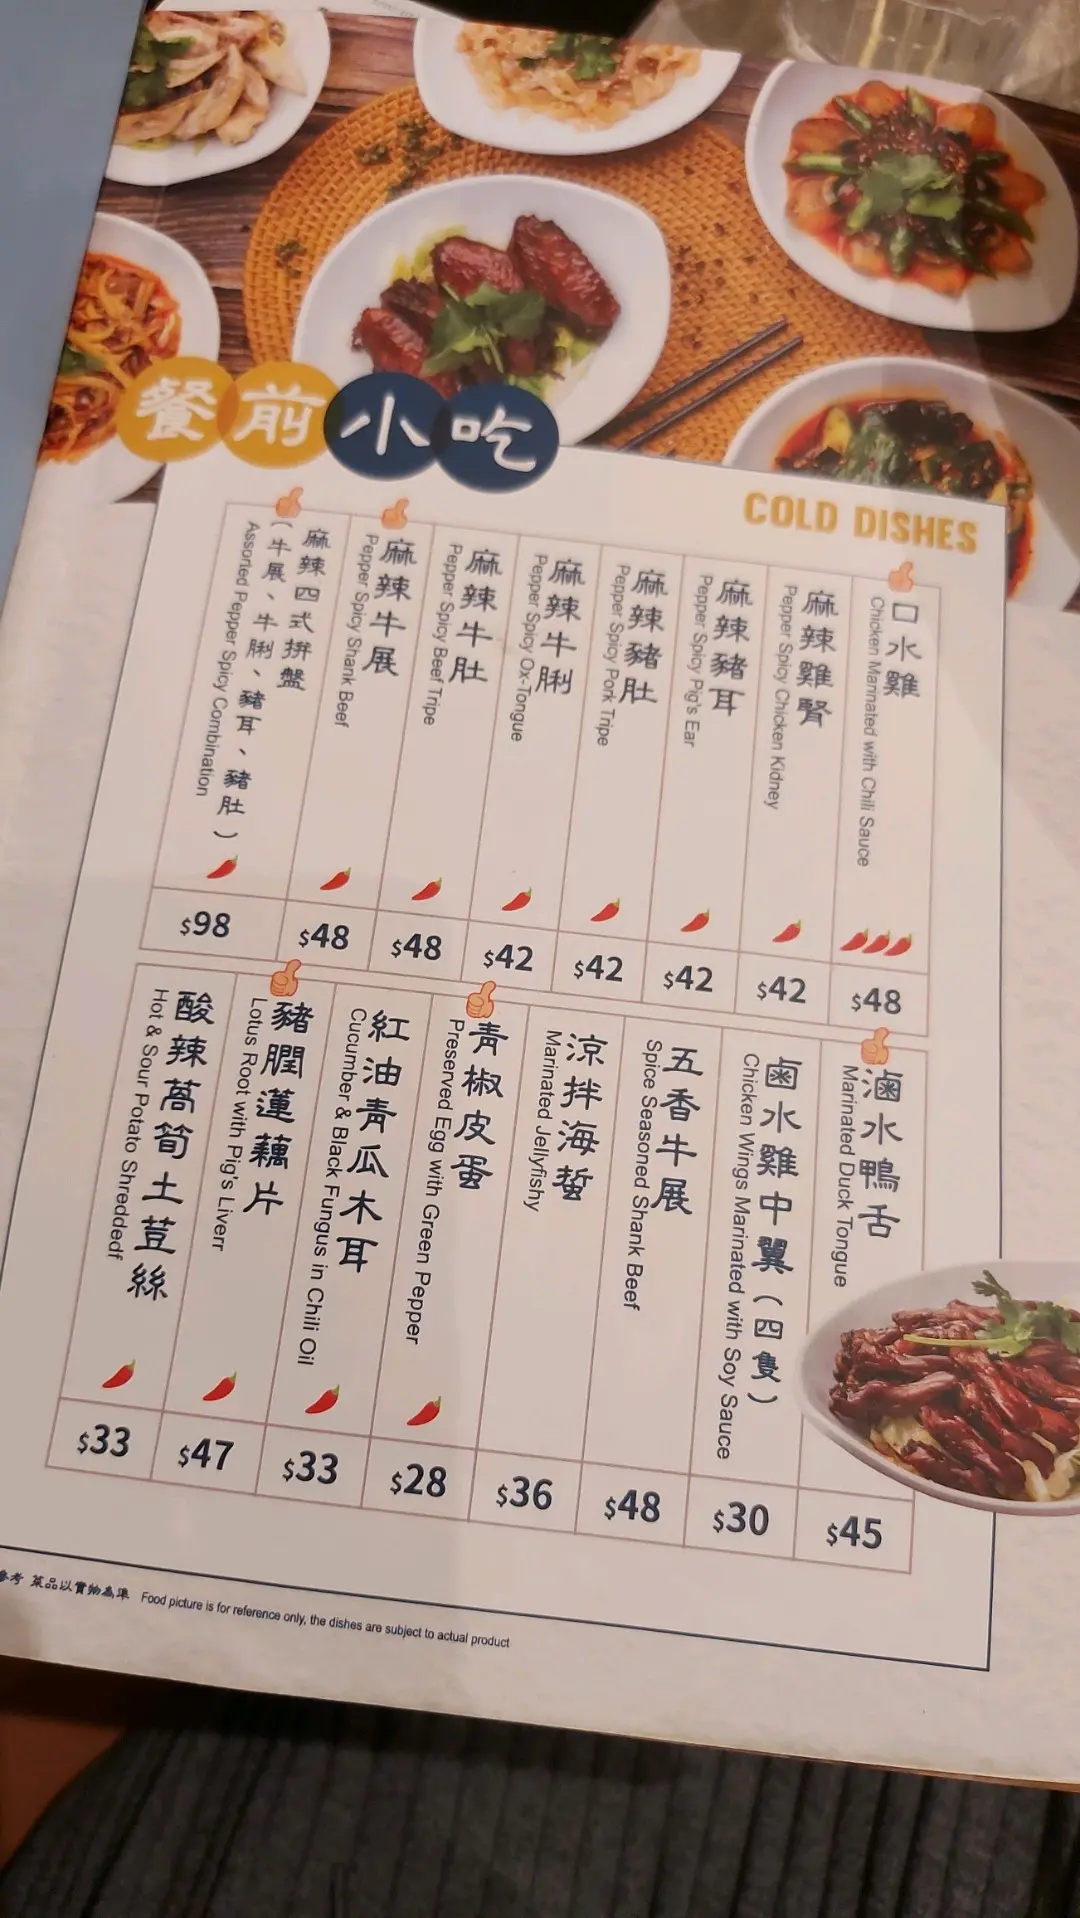 餐前小吃
COLD DISHES
口水雞
Chicken Marinated with Chili Sauce
$48
麻辣雞腎
Pepper Spicy Chicken Kidney
$42
麻辣豬耳
Pepper Spicy Pig's Ear
$42
麻辣豬肚
Pepper Spicy Pork Tripe
$42
麻辣牛脷
Pepper Spicy Ox-Tongue
$42
麻辣牛肚
Pepper Spicy Beef Tripe
$48
麻辣牛展
Pepper Spicy Shank Beef
$48
麻辣四式拼盤
(牛展、牛脷、豬耳、豬肚)
Assorted Pepper Spicy Combination
$98
滷水鴨舌
Marinated Duck Tongue
$45
鹵水雞中翼(四隻)
Chicken Wings Marinated with Soy Sauce
$30
五香牛展
Spice Seasoned Shank Beef
$48
涼拌海蜇
Marinated Jellyfishy
$36
青椒皮蛋
Preserved Egg with Green Pepper
$28
紅油青瓜木耳
Cucumber & Black Fungus in Chili Oil
$33
豬膶蓮藕片
Lotus Root with Pig's Liverr
$47
酸辣萵筍土荳絲
Hot & Sour Potato Shreddedf
$33
參考 菜品以實物為準 Food picture is for reference only, the dishes are subject to actual product